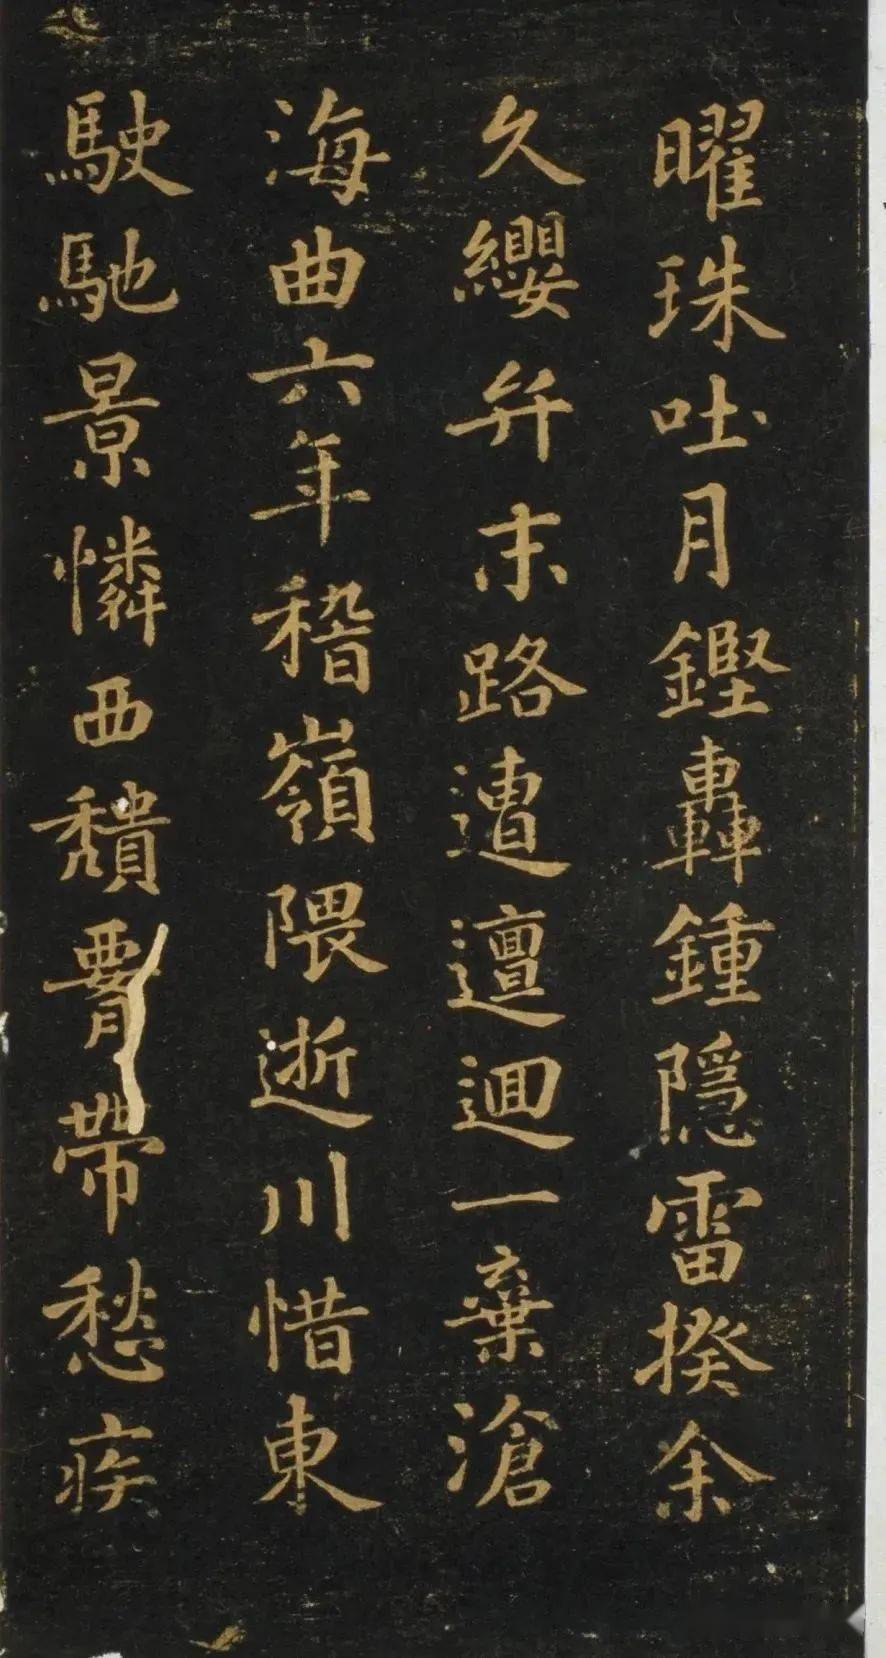 曜珠吐月鏗轟鍾隠雷揆余
久纓弁末路遭邅迴一棄滄
海曲六年稽嶺隈逝川惜東
駛馳景憐西穨腰帶愁疾